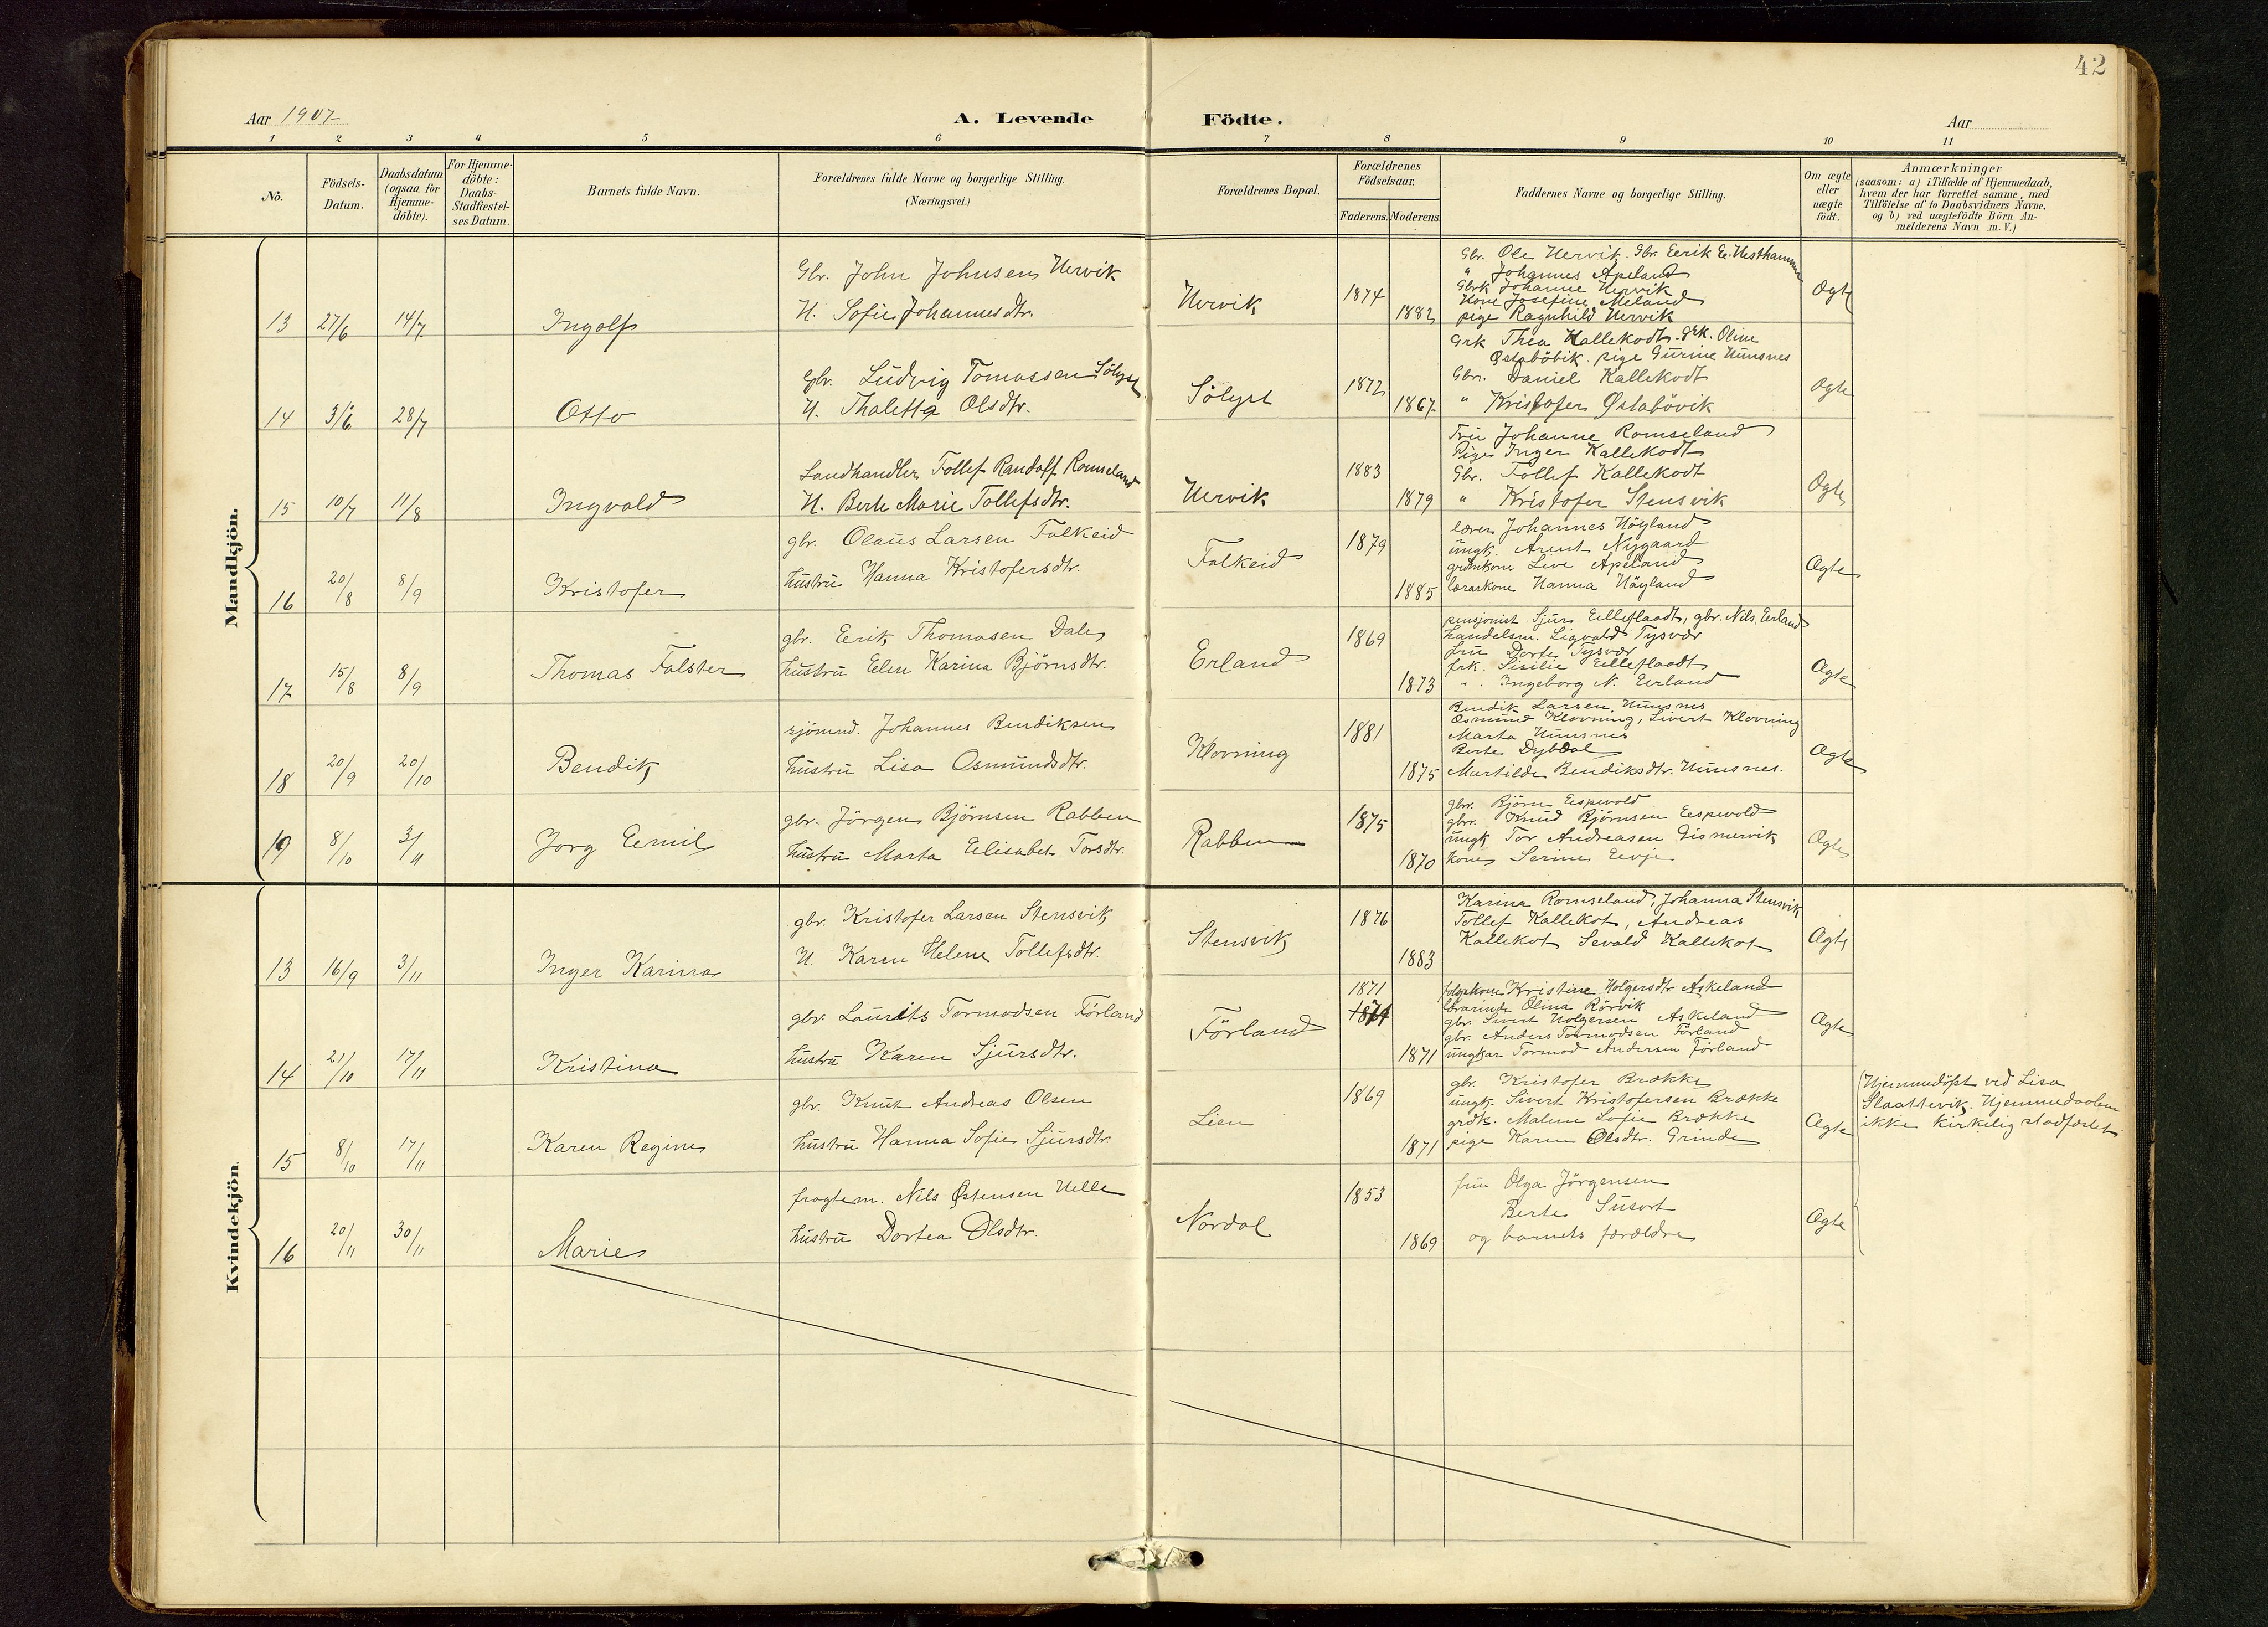 42
Aar 1907
A. Levende Födte.
Aar
1 2 3 4 5 6 7 8 9 10 11
No.
Födsels-
Datum.
Daabsdatum
(ogsaa for
Hjemme-
döbte).
For Hjemme-
döbte:
Daabs-
Stadfæstel-
ses Datum.
Barnets fulde Navn.
Forældrenes fulde Navne og borgerlige Stilling.
(Næringsvei.)
Forældrenes Bopæl.
Forældrenes
Födselsaar.
Faderens. Moderens.
Faddernes Navne og borgerlige Stilling.
Om ægte
eller
uægte
födt.
Anmærkninger
(saasom: a) i Tilfælde af Hjemmedaab,
hvem der har forrettet samme, med
Tilföielse af to Daabsvidners Navne.
og b) ved uægtefödte Börn An-
melderens Navn m. V.)
Mandkjön.
13 27/6 14/7 Ingolf
Gbr. John Johnsen Hervik
H. Sofie Johannesdtr.
Hervik
1874
1882
Gbr. Ole Hervik. Gbr. Eerik E. Vesthammer
" Johannes Apeland
Gbrk Johanne Hervik
Kone Josefine Meland
pige Ragnhild Hervik
Ægte
14 3/6 28/7 Otto
Gbr. Ludvig Tomassen Sölyst
H. Thaletta Olsdtr.
Sölyst
1872
1867
Grk Thea Kallekodt. grk. Oline
Østabövik. pige Gurine Hunsnes
Gbr. Daniel Kallekodt
" Kristofer Østabövik
Ægte
15 10/7 11/8 Ingvald
Landhandler Tollef Randolf Romseland
H. Berte Marie Tollefsdtr.
Hervik
1883
1879
Fru Johanne Romseland
Pige Inger Kallekodt
Gbr. Tollef Kallekodt
" Kristofer Stensvik
Ægte
16 20/8 8/9 Kristofer
gbr. Olaus Larsen Falkeid
hustru Hanna Kristofersdtr.
Falkeid
1879
1885
lærer Johannes Höyland
ungk. Arent Nygaard
grdmkone Live Apeland
lærerkone Hanna Höyland
Ægte
17 15/8 8/9 Thomas Falster
gbr. Eerik Thomasen Dale
hustru Elen Karina Björnsdtr.
Erland
1869
1873
pensjonist Sjurs Eelleflaadt, gbr. Nils Eerland
handelsm. Sigvald Tysvær
fru Dorte Tysvær
frk. Sisilie Eelleflaadt
" Ingeborg N. Eerland
Ægte
18 20/9 20/10 Bendik
sjömnd. Johannes Bendiksen
hustru Lisa Osmundsdtr.
Klovning
1881
1875
Bendik Larsen Hunsnes
Osmund Klovning, Sivert Klovning
Marta Hunsnes
Berte Dybdal
Martilde Bendiksdtr. Hunsnes.
Ægte
19 8/10 3/11 Jorg Eemil
gbr. Jörgen Björnsen Rabben
hustru Marta Eelisabet Torsdtr.
Rabben
1875
1870
gbr. Björn Eespevold
gbr. Knud Björnsen Eespevold
ungk Tor Andreasen Gismervik
kone Serine Eevje
Ægte
Kvindekjön.
13 16/9 3/11 Inger Karina
gbr. Kristofer Larsen Stensvik
H. Karen Helene Tollefsdtr.
Stensvik
1876
1883
Karina Romseland, Johanna Stensvik
Tollef Kallekot, Andreas
Kallekot Sevald Kallekot
Ægte
14 21/10 17/11 Kristina
gbr. Laurits Tormodsen Förland
hustru Karen Sjursdtr.
Förland
1871
1871
Kristine Holgersdtr Askeland
lærarinde Olina Rörvik
gbr. Sivert Holgersen Askeland
gbr. Anders Tormodsen Förland
ungkar Tormod Andersen Förland
Ægte
15 8/10 17/11 Karen Regine
gbr. Knut Andreas Olsen
hustru Hanna Sofie Sjursdtr.
Lien
1869
1871
gbr. Kristofer Brække
ungk. Sivert Kristofersen Brække
grdk. Malene Sofie Brække
pige Karen Olsdtr. Grinde
Ægte
Hjemmedöpt ved Lisa
Slaattevik. Hjemmedaaben
ikke kirkelig stadfæstet
16 20/11 30/11 Marie
fragtem. Nils Østensen Helle
hustru Dortea Olsdtr.
Nordal
1853
1869
fru Olga Jörgensen
Berte Susort
og barnets forældre
Ægte